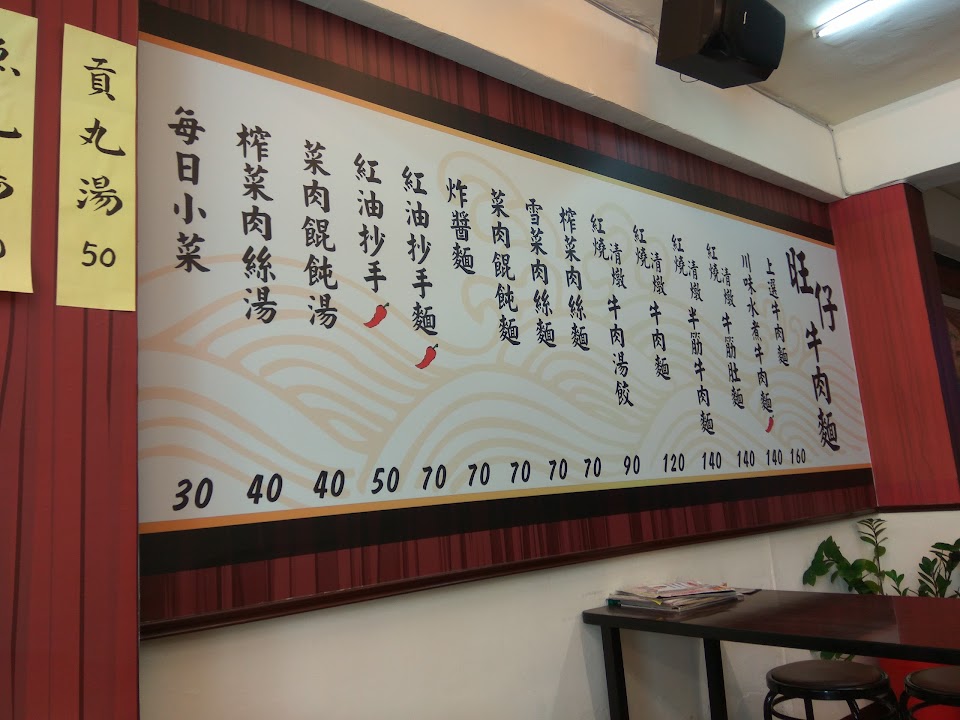 旺仔牛肉麵
上選牛肉麵 160
川味水煮牛肉麵 140
紅燒 清燉 牛筋肚麵 140
紅燒 清燉 半筋牛肉麵 140
紅燒 清燉 牛肉麵 120
紅燒 清燉 牛肉湯餃 90
榨菜肉絲麵 70
雪菜肉絲麵 70
菜肉餛飩麵 70
炸醬麵 70
紅油抄手麵 70
紅油抄手 50
菜肉餛飩湯 40
榨菜肉絲湯 40
每日小菜 30
貢丸湯 50